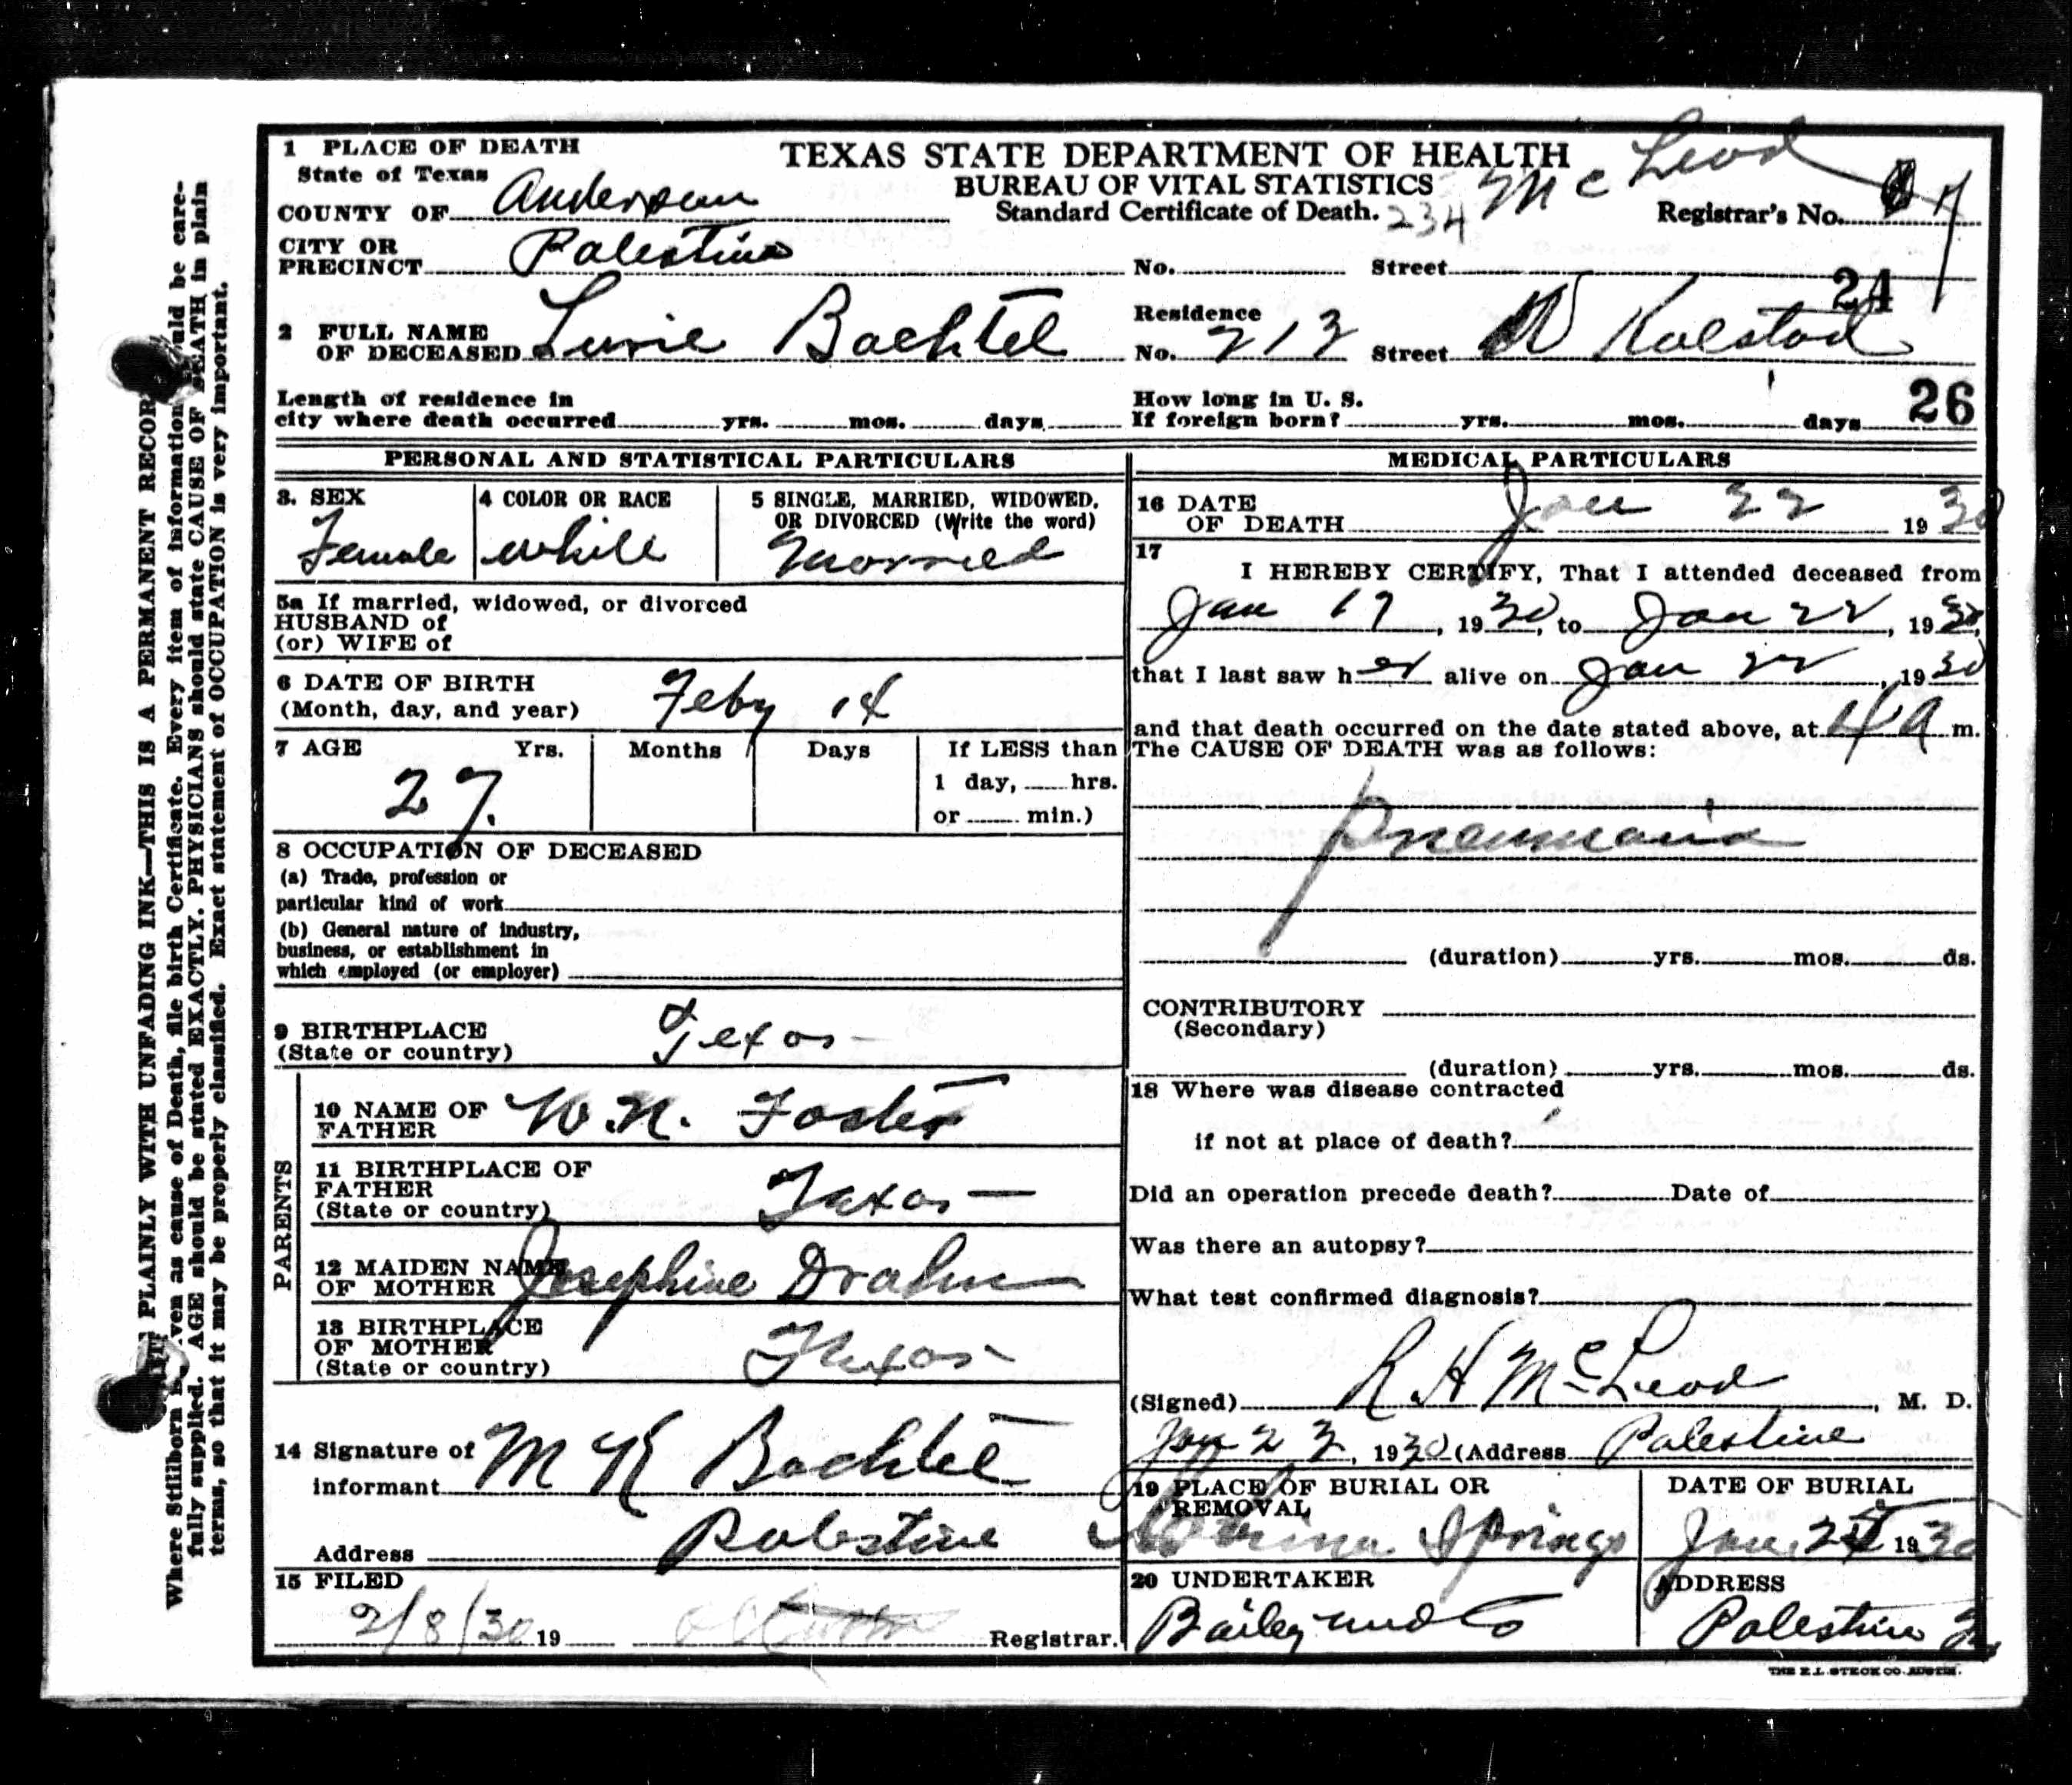 1 PLACE OF DEATH
State of Texas
COUNTY OF Anderson
CITY OR
PRECINCT Palestine
TEXAS STATE DEPARTMENT OF HEALTH
BUREAU OF VITAL STATISTICS
Standard Certificate of Death. 234
Mc Leod
Registrar's No. 7
No. Street
24
2 FULL NAME
OF DECEASED Bachtel
Residence
No. 213 Street W Kolstad
Length of residence in
city where death occurred yrs. mos. days
How long in U. S.
If foreign born? yrs. mos. days
26
PERSONAL AND STATISTICAL PARTICULARS
3. SEX
Female
4 COLOR OR RACE
white
5 SINGLE, MARRIED, WIDOWED,
OR DIVORCED (Write the word)
Married
5a If married, widowed, or divorced
HUSBAND of
(or) WIFE of
6 DATE OF BIRTH
(Month, day, and year) Feby 14
7 AGE Yrs. Months Days If LESS than
1 day, hrs.
or min.)
27.
8 OCCUPATION OF DECEASED
(a) Trade, profession or
particular kind of work
(b) General nature of industry,
business, or establishment in
which employed (or employer)
9 BIRTHPLACE
(State or country) Texas
PARENTS
10 NAME OF
FATHER W. N. Foster
11 BIRTHPLACE OF
FATHER
(State or country) Texas
12 MAIDEN NAME
OF MOTHER Josephine
13 BIRTHPLACE
OF MOTHER
(State or country) Texas
14 Signature of
informant M K Bachtel
Address Palestine
15 FILED
2/8/30 19 Registrar.
MEDICAL PARTICULARS
16 DATE
OF DEATH Jan 22 1930
17
I HEREBY CERTIFY, That I attended deceased from
Jan 17, 1930, to Jan 22, 1930,
that I last saw her alive on Jan 22, 1930
and that death occurred on the date stated above, at 4 A m.
The CAUSE OF DEATH was as follows:
Pneumonia
(duration) yrs. mos. ds.
CONTRIBUTORY
(Secondary)
(duration) yrs. mos. ds.
18 Where was disease contracted
if not at place of death?
Did an operation precede death? Date of
Was there an autopsy?
What test confirmed diagnosis?
(Signed) R H McLeod, M. D.
Jan 23, 1930 (Address Palestine
19 PLACE OF BURIAL OR
REMOVAL
Springs
DATE OF BURIAL
Jan. 1930
20 UNDERTAKER
Bailey and Co
ADDRESS
Palestine
THE E.L. STECK CO. AUSTIN.
PLAINLY WITH UNFADING INK—THIS IS A PERMANENT RECORD
Where Stillborn as cause of Death, file birth Certificate. Every item of information should be care-
fully supplied. AGE should be stated EXACTLY. PHYSICIANS should state CAUSE OF DEATH in plain
terms, so that it may be properly classified. Exact statement of OCCUPATION is very important.